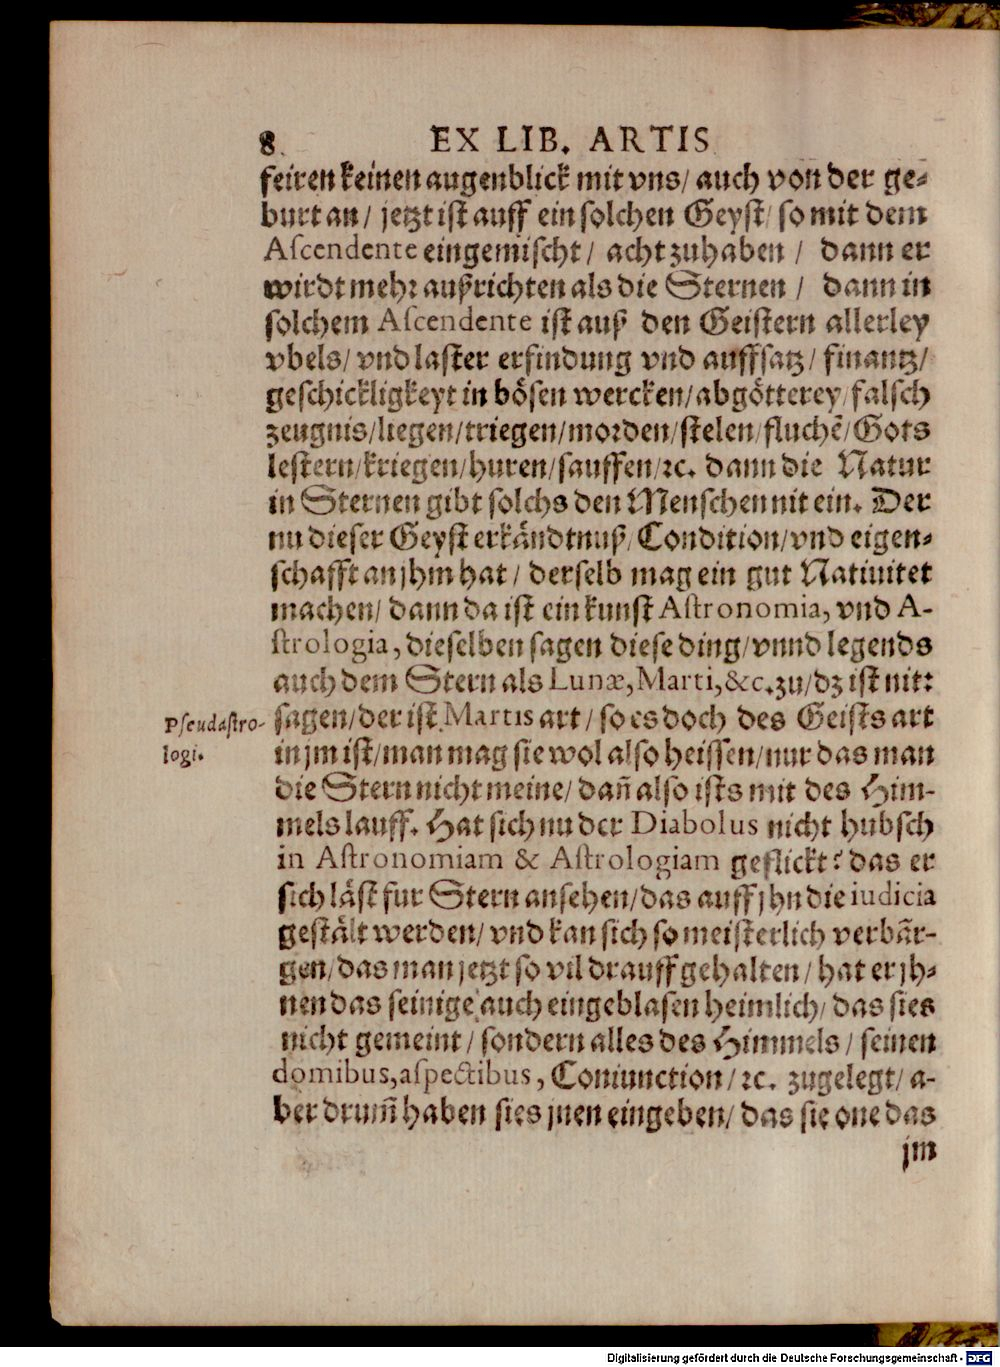 8 EX LIB. ARTIS
feiren keinen augenblick mit vns/ auch von der ge⸗
burt an/ jetzt ist auff ein solchen Geyst/ so mit dem
Aſcendente eingemischt/ acht zuhaben/ dann er
wirdt mehr außrichten als die Sternen/ dann in
solchem Aſcendente ist auß den Geistern allerley
vbels/ vnd laster erfindung vnd auffsatz/ finantz/
geschickligkeyt in bösen wercken/ abgötterey/ falsch
zeugnis/ liegen/ triegen/ morden/ stelen/ fluchē/ Gots
lestern/ kriegen/ huren/ sauffen/ ꝛc. dann die Natur
in Sternen gibt solchs den Menschen nit ein. Der
nu dieser Geyst erkändtnuß/ Condition/ vnd eigen⸗
schafft an jhm hat/ derselb mag ein gut Natiuitet
machen/ dann da ist ein kunst Aſtronomia, vnd A-
ſtrologia, dieselben sagen diese ding/ vnnd legends
auch dem Stern als Lunæ, Marti, &c. zu/ dz ist nit:
Pſeudaſtro-
logi.
sagen/ der ist Martis art/ so es doch des Geists art
in jm ist/ man mag sie wol also heissen/ nur das man
die Stern nicht meine/ dañ also ists mit des Him-
mels lauff. Hat sich nu der Diabolus nicht hubsch
in Aſtronomiam & Aſtrologiam geflickt? das er
sich läst fur Stern ansehen/ das auff jhn die iudicia
gestält werden/ vnd kan sich so meisterlich verbär-
gen/ das man jetzt so vil drauff gehalten/ hat er jh⸗
nen das seinige auch eingeblasen heimlich/ das sies
nicht gemeint/ sondern alles des Himmels/ seinen
domibus, aſpectibus, Coniunction/ ꝛc. zugelegt/ a-
ber drum̃ haben sies jnen eingeben/ das sie one das
jm
Digitalisierung gefördert durch die Deutsche Forschungsgemeinschaft - DFG